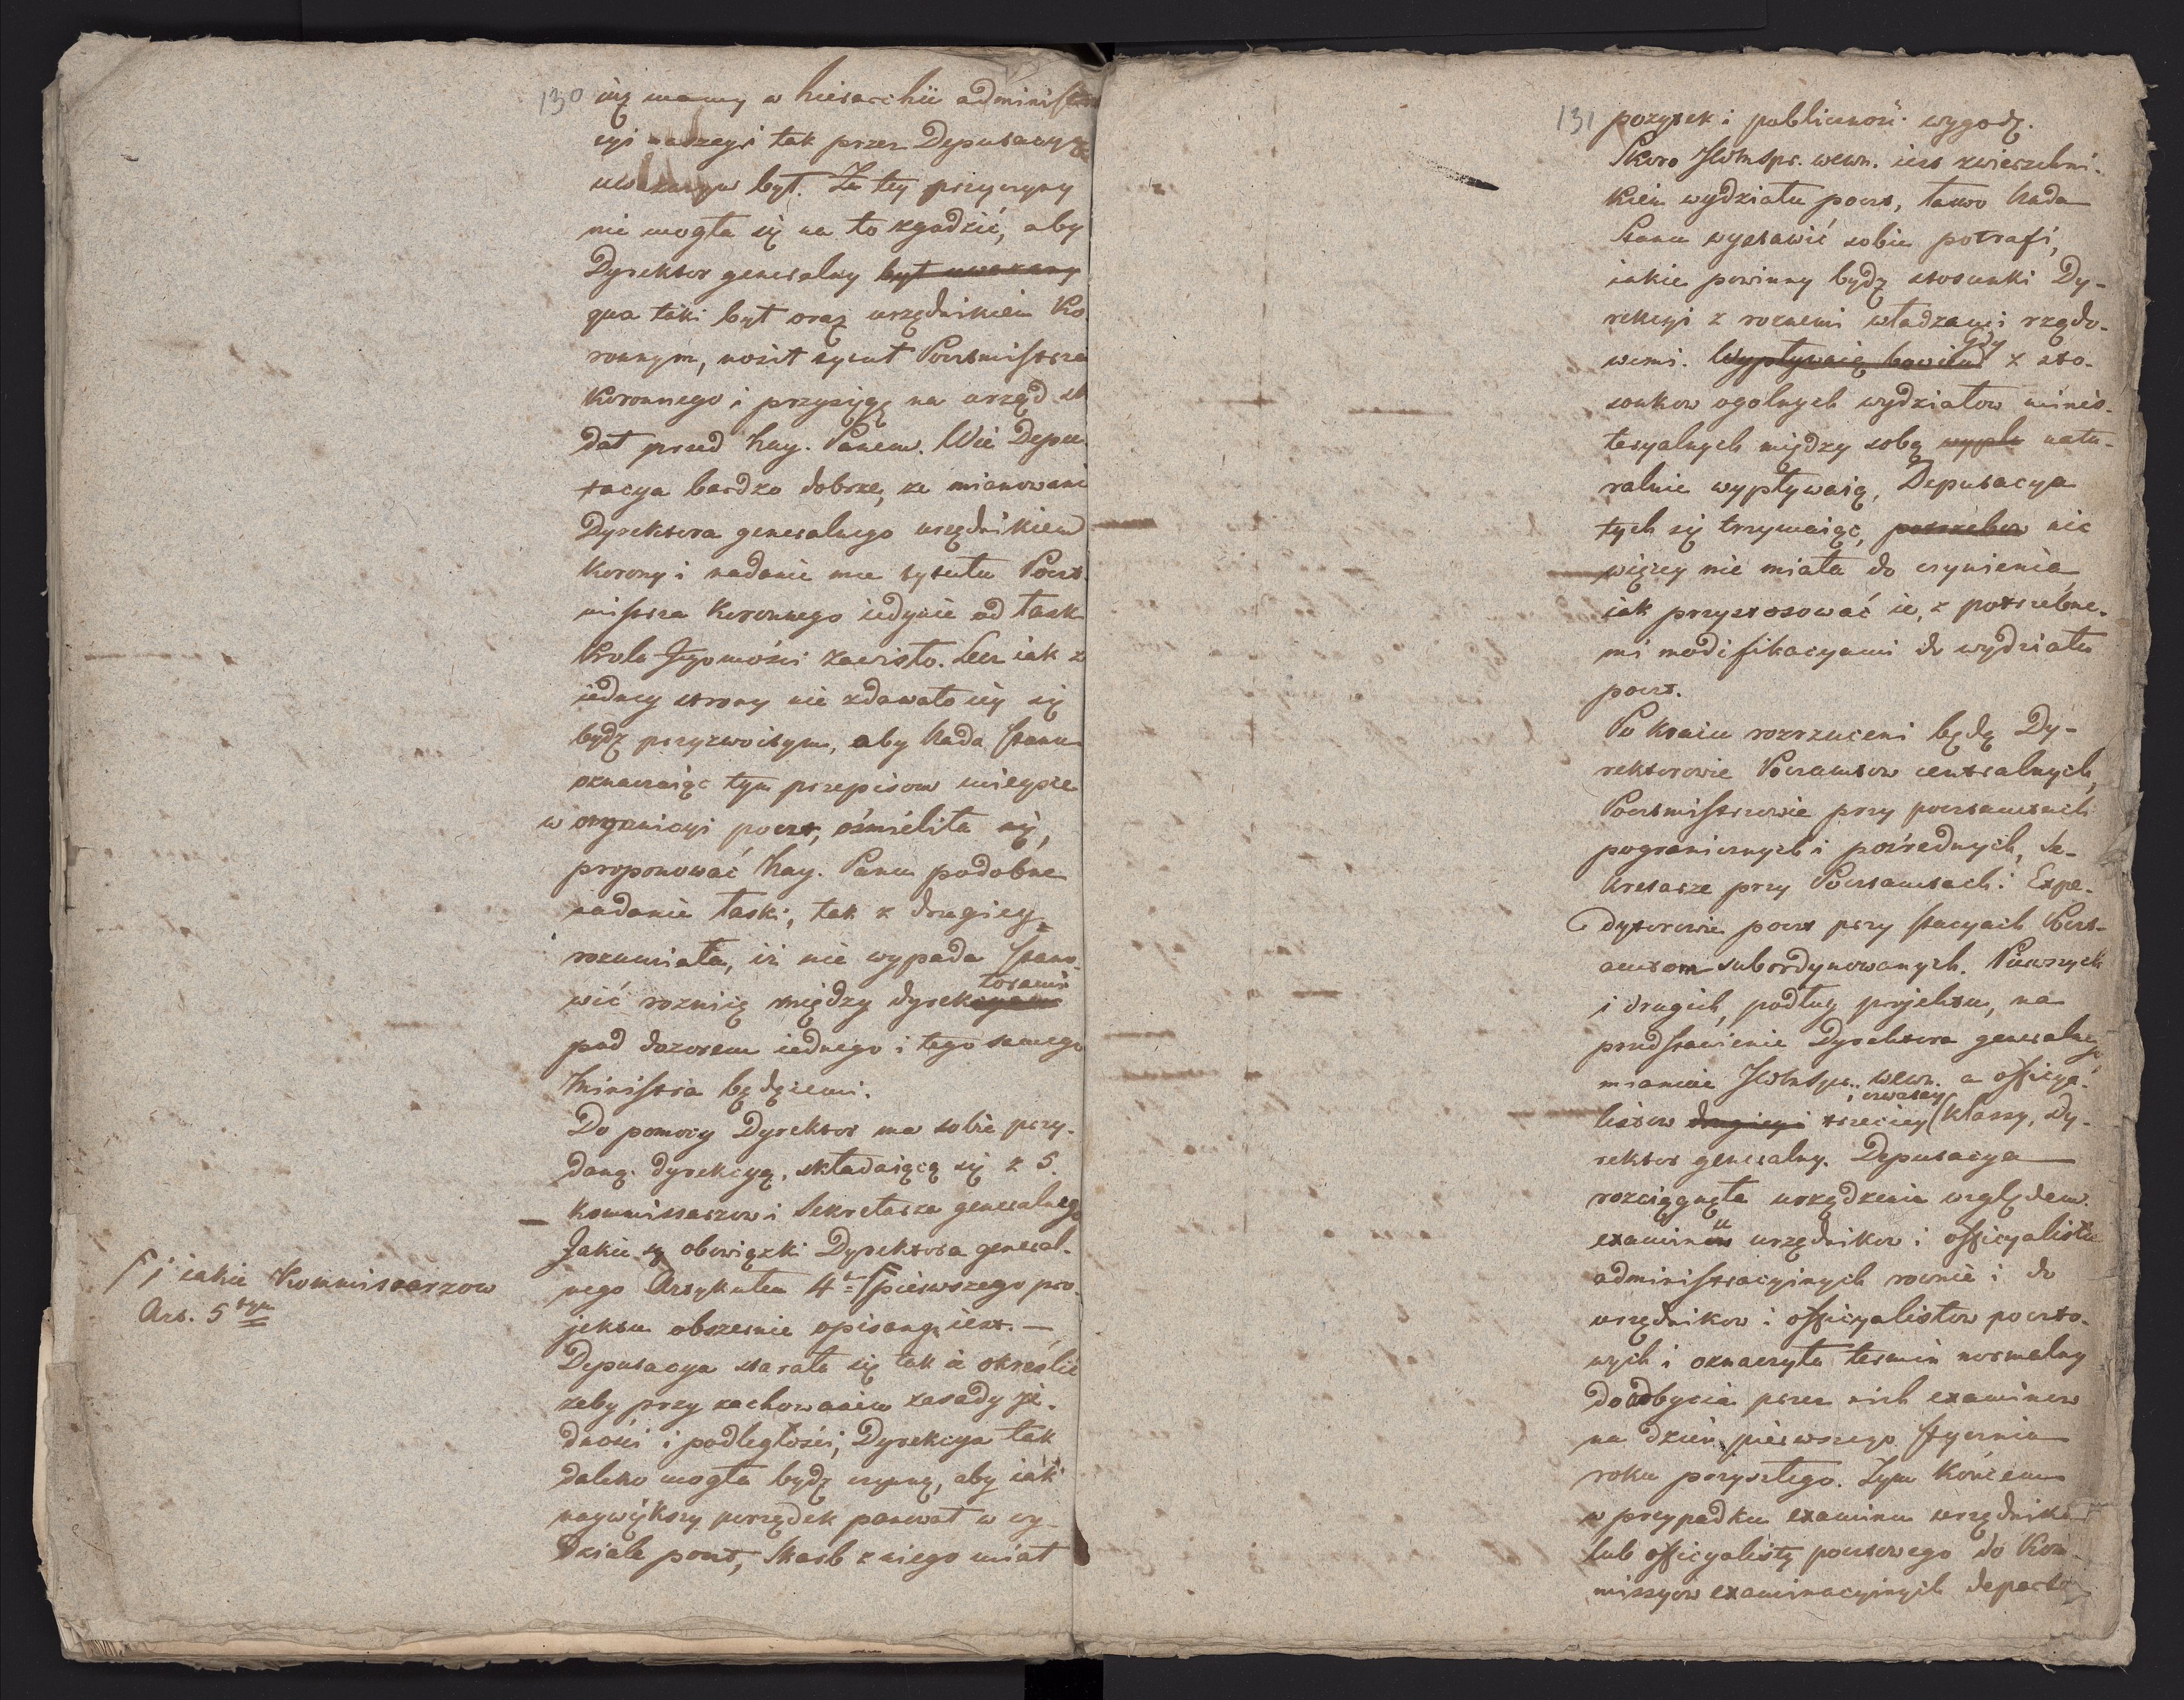 130
iuż mamy w hierarchii administra
cyi naszey i tak przez Deputacyą
uważanym był. Za tey przyczyny
nie mogła się na to zgodzić, aby
Dyrektor generalny był uważany
qua taki był oraz urzędnikiem Ko
ronnym, nosił tytuł Poczmistrza
Koronnego i przysięgę na urząd sk
dał przed Nay. Panem. Wie Depu
tacya bardzo dobrze, ze mianowanie
Dyrektora generalnego urzędnikiem
Korony i nadanie mu tytułu Poczt
mistrza Koronnego iedynie od łask
Krola Jegomości zawisło. Lecz iak z
iedney strony nie zdawało iey się
bydź przyzwoitym, aby Rada Stanu
oznaczaiąc tym przepisom mieysce
w organizacyi poczt, ośmieliła się,
proponować Nay. Panu podobne
nadanie łaski, tak z drugiey
rozumiała, iż nie wypada stano
wić roznicę między dyrekcyami
torami
pod dozorem iednego i tego samego
Ministra będącemi.
Do pomocy Dyrektor ma sobie przy-
daną dyrekcyą, składaiącą się z 5.
Kommissarzow i Sekretarza generalnego
Jakie są obowiązki Dyrektora general-
nego Artykułem 4m pierwszego pro
jektu obszernie opisano iest. —
i iakie Kommissarzow
Art. 5tym
Deputacya starała się tak ie określić
żeby przy zachowaniu zasady je-
dności i podległości, Dyrekcya tak
daleko mogła bydź czynną, aby iak
naywiększy porządek panował w wy
dziale poczt, Skarb z niego miał
131
pożytek i publiczność wygodę.
Skoro JWMSpr. wewn. iest zwierzchni-
kiem wydziału poczt, łatwo Rada
Stanu wystawić sobie potrafi,
iakie powinny bydź stosunki Dy-
rekcyi z roznemi władzami rządo-
gdy
wemi. Wypływaią bowiem z sto-
sunkow ogolnych wydziałow minis-
teryalnych między sobą wypły natu-
ralnie wypływaią, Deputacya
tych się trzymaiąc, potrzebow nic
więcey nie miała do czynienia
iak przystosować ie, z potrzebne-
mi modifikacyami do wydziału
poczt.
Po kraiu rozrzuceni będą Dy-
rektorowie Pocztamtow centralnych,
Pocztmistrzowie przy pocztamtach
pogranicznych i pośrednych, Se-
kretarze przy Pocztamtach i Expe-
dytorowie poczt przy stacyach Poczt-
amtom subordynowanych. Pierwszych
i drugich, podług projektu, na
przedstawienie Dyrektora generalnego
mianuie JWMSpr. wewn. a officya-
i czwartey
listow drugiey i trzeciey klassy, Dy-
rektor generalny. Deputacya
rozciągnęła urządzenie względem
examinu urzędnikow i officyalistow
administracyinych rownie i do
urzędnikow i officyalistow poczto-
wych i oznaczyła termin normalny
do odbycia przez nich examinow
na dzień pierwszego Stycznia
roku przyszłego. Tym końcem
w przypadku examinu urzędnika
lub officyalisty pocztowego do Kom-
missyow examinacyinych departa